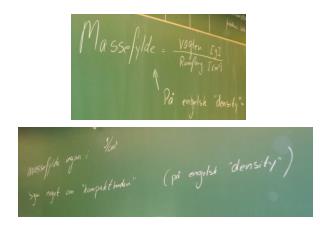 Massefylde = Vægten [g] / Rumfang [cm³]
På engelsk "density"
massefylde angives i g/cm³
siger noget om "kompaktheden"
(på engelsk "density")